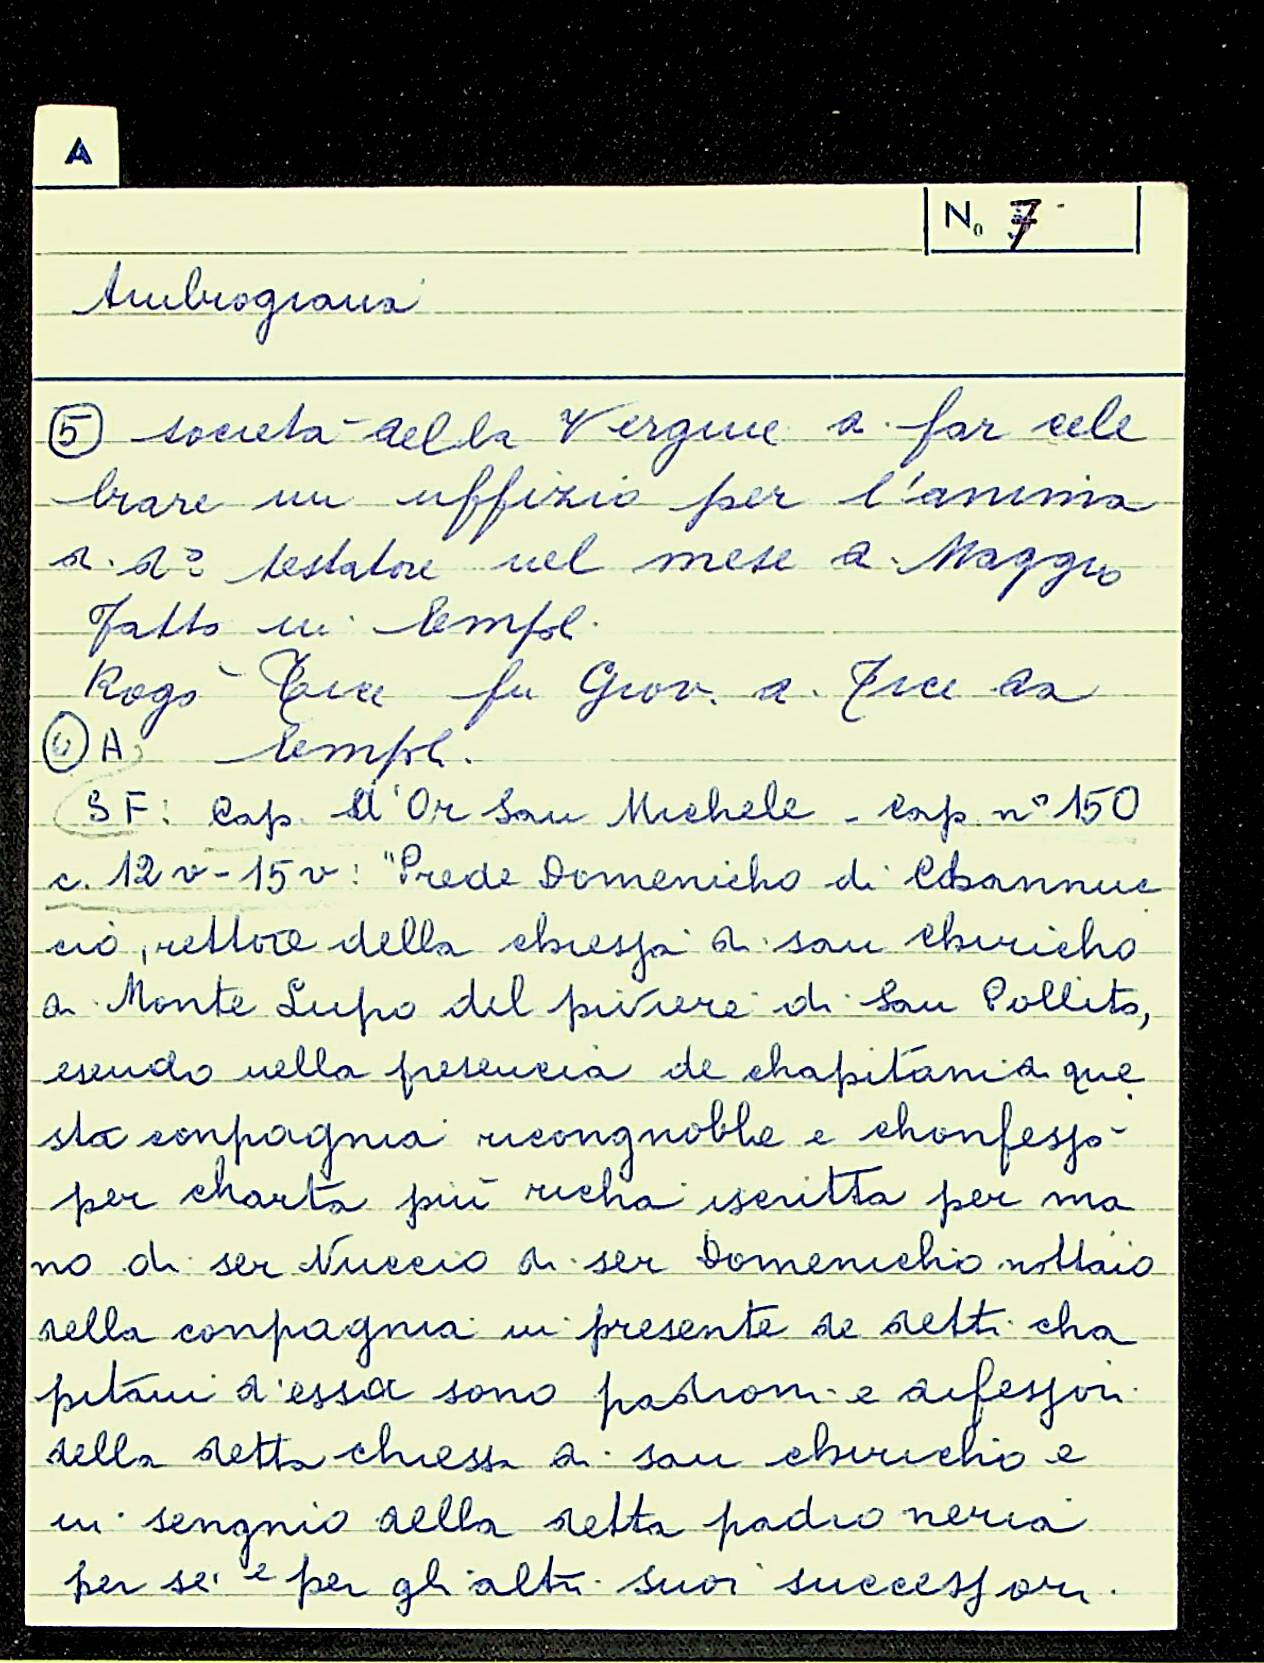 A
No 7
Ambrogiana
5 società della Vergine a far cele
brare un uffizio per l'anima
d. d.º testatore nel mese d. Maggio
Fatto in Empol.
Rogò fu Giov. d. da
6 A Empol.
SF: Cap. d'Or San Michele - Cap. nº 150
c. 12 v - 15 v: "Prede Domenicho di Channuc
cio, rettore della chiesfa di san chiricho
di Monte Lupo del piviere di San Pollito,
esendo nella presencia de chapitani di que
sta conpagnia ricongnobbe e chonfessò
per charta più richa iscritta per ma
no di ser Nuccio di ser Domenicho nottaio
della conpagnia in presente de detti cha
pitani d'essa sono padroni e difessori
della detta chiessa di san chiricho e
in sengnio della detta padroneria
per se e per gli altri suoi successori.